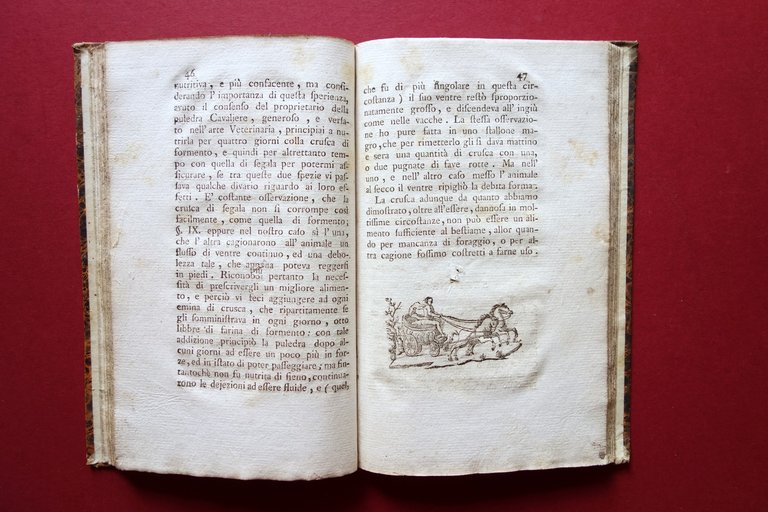 46
nutritiva, e più confacente, ma consi-
derando l'importanza di questa sperienza,
avuto il consenso del proprietario della
puledra Cavaliere, generoso, e versa-
to nell'arte Veterinaria, principiai a nu-
trirla per quattro giorni colla crusca di
formento, e quindi per altrettanto tem-
po con quella di segala per potermi as-
sicurare, se tra queste due spezie vi pas-
sava qualche divario riguardo ai loro ef-
fetti. E' costante osservazione, che la
crusca di segala non si corrompe così
facilmente, come quella di formento;
§. IX. eppure nel nostro caso sì l'una,
che l'altra cagionarono all'animale un
flusso di ventre continuo, ed una debo-
lezza tale, che appena poteva reggersi
in piedi. Riconobbi pertanto la neces-
sità di prescrivergli un migliore alimen-
to, e perciò vi feci aggiungere ad ogni
emina di crusca, che ripartitamente se
gli somministrava in ogni giorno, otto
libbre di farina di formento: con tale
addizione principiò la puledra dopo al-
cuni giorni ad essere un poco più in for-
ze, ed in istato di poter passeggiare; ma fin-
tantochè non fu nutrita di fieno, continua-
rono le dejezioni ad essere fluide, e (quel,
47
che fu di più singolare in questa cir-
costanza) il suo ventre restò sproporzio-
natamente grosso, e discendeva all'ingiù
come nelle vacche. La stessa osservazio-
ne ho pure fatta in uno stallone ma-
gro, che per rimetterlo gli si dava mattino
e sera una quantità di crusca con una,
o due pugnate di fave rotte. Ma nell'
uno, e nell'altro caso messo l'animale
al secco il ventre ripigliò la debita forma.
La crusca adunque da quanto abbiamo
dimostrato, oltre all'essere, dannosa in mol-
tissime circostanze, non può essere un ali-
mento sufficiente al bestiame, allor quan-
do per mancanza di foraggio, o per al-
tra cagione fossimo costretti a farne uso.